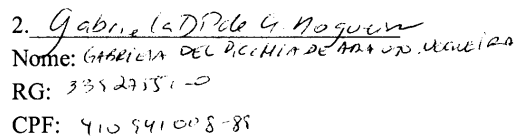 2. Gabriela DP de A. Nogueira
Nome: GABRIELA DEL PICCHIA DE ARAUJO NOGUEIRA
RG:
CPF: 410 941 008-89